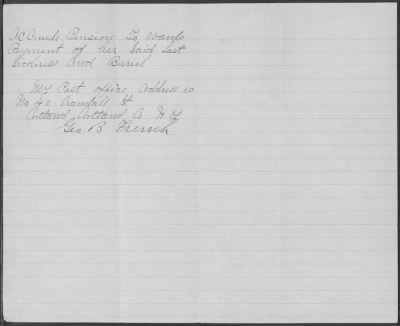 Accrued Pension To, wards
Payment of her Said Last
Sickness And Burial
My Post office Address is
No 40 Crandall St
Cortland Cortland Co N Y
Geo B French